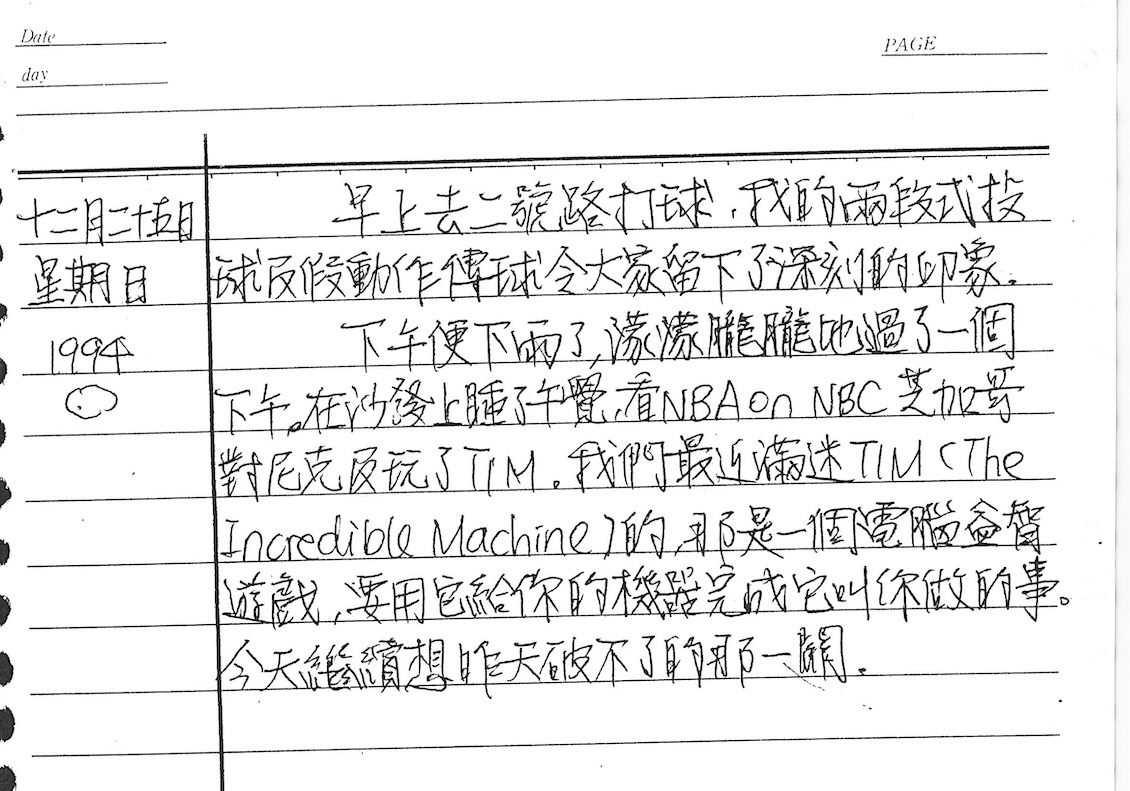 Date
day
PAGE
十二月二十五日
星期日
1994
早上去二號路打球．我的兩段式投
球及假動作傳球令大家留下了深刻的印象．
下午便下雨了，濛濛朧朧地過了一個
下午。在沙發上睡了午覺．看NBA on NBC 芝加哥
對尼克及玩了TIM．我們最近滿迷TIM（The
Incredible Machine）的，那是一個電腦益智
遊戲，要用它給你的機器完成它叫你做的事。
今天繼續想昨天破不了的那一關．